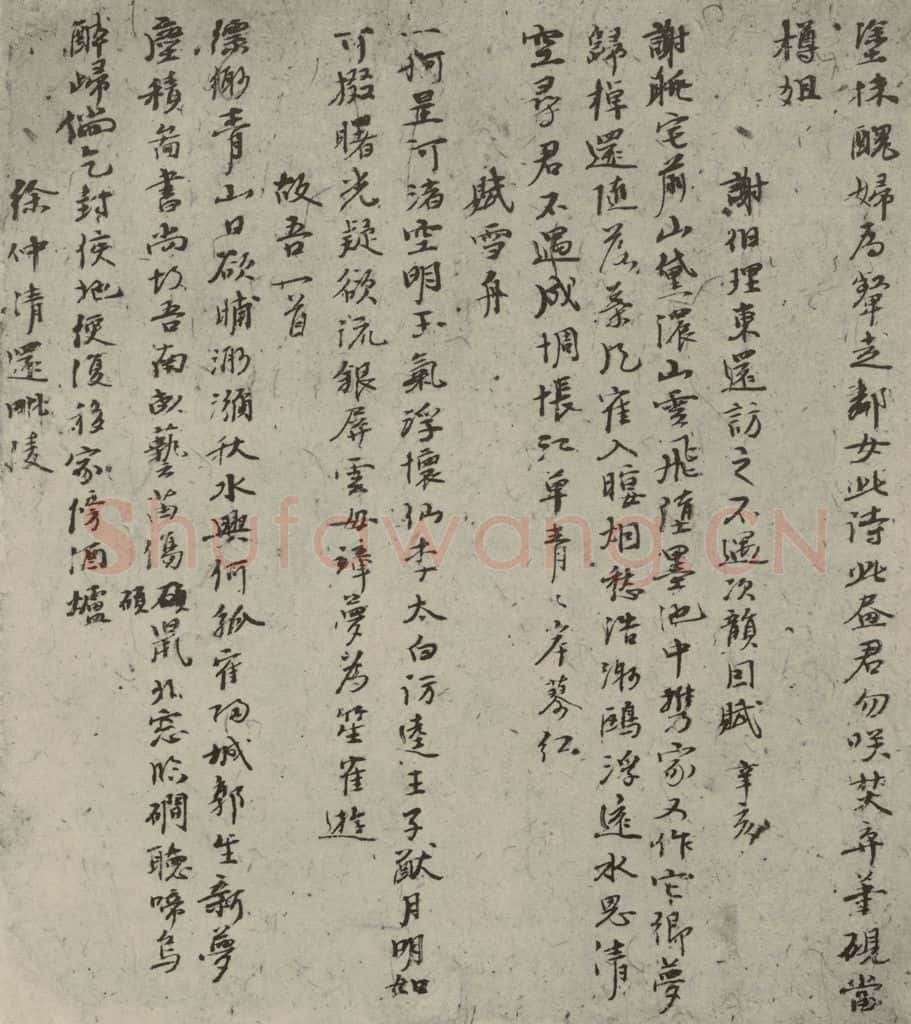 塗抹醜婦為顰走鄰女此詩此畫君勿咲焚弃筆硯當
樽俎
謝伯理東還訪之不遇次韻因賦 辛亥
謝眺宅前山黛濃山雲飛墮墨池中携家又作它鄉夢
歸棹還隨落葉風寉入暝烟愁浩渺鷗浮遠水思清
空尋君不遇成惆悵江草青〻岸蓼红
賦雪舟
一舸星河渚空明玉氣浮懷仙李太白訪逵王子猷月明如
可掇曙光疑欲流銀屏雲母障夢為笙寉遊
故吾一首
縹緲青山日欲晡渺瀰秋水興何孤寉歸城郭生新夢
塵積啚書尚故吾南畝藝苗傷碩鼠北窓臨磵聽啼烏
碩
醉歸倘乞封侯地便復移家傍酒壚
徐仲清還毗陵
Shufawang.CN